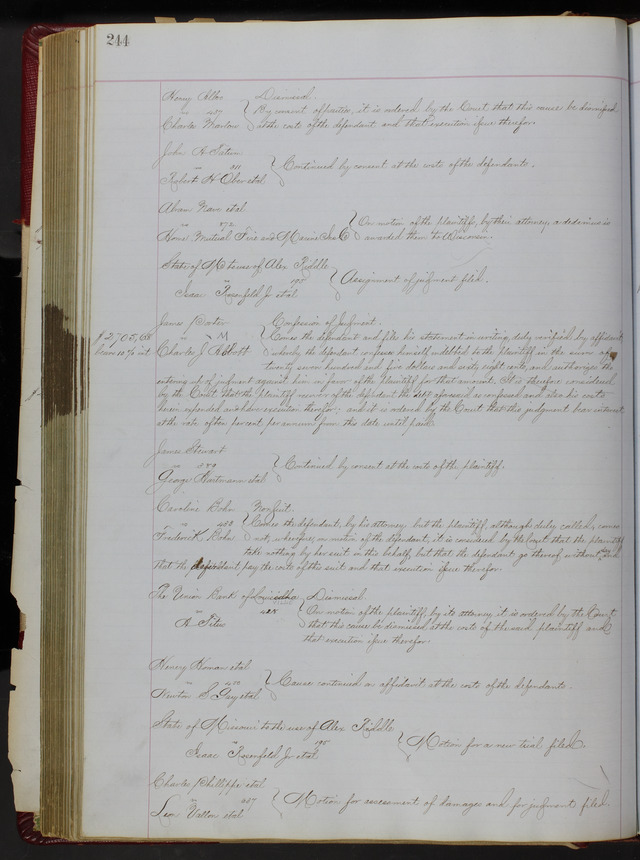 244
Henry Albo Dismissal.
vs 407 By consent of parties, it is ordered by the Court that this cause be dismissed
Charles Marlow at the costs of the defendant and that execution issue therefor.
John A. Tatum
vs Continued by consent at the costs of the defendants.
Robert H. Ober et al
Abram Nave et al
vs 872 On motion of the plaintiffs, by their attorney, a dedimus is
Home Mutual Fire and Marine Ins Co awarded them to Wisconsin.
State of Mo to use of Alex Riddle
vs 195 Assignment of judgment filed.
Isaac Rosenfeld Jr et al
James Porter Confession of Judgment.
$2,705,68 vs M Comes the defendant and files his statement in writing, duly verified by affidavit
bears 10% int. Charles J. whereby the defendant confesses himself indebted to the plaintiff in the sum of
twenty seven hundred and five dollars and sixty eight cents, and authorizes the
entering up of judgment against him in favor of the plaintiff for that amount. It is therefore considered
by the Court that the plaintiff recover of the defendant the debt aforesaid so confessed and also his costs
herein expended and have execution therefor; and it is ordered by the Court that this judgment bear interest
at the rate of ten per cent per annum from this date until paid.
James Stewart
vs Continued by consent at the costs of the plaintiff.
George Hartmann et al
Caroline Bohn Nonsuit.
vs 400 Comes the defendant, by his attorney but the plaintiff, although duly called, comes
Frederick Bohn not, wherefore, on motion of the defendant, it is considered by the Court that the plaintiff
take nothing by her suit in this behalf, but that the defendant go thereof without day and
that the defendant pay the costs of this suit and that execution issue therefor.
The Union Bank of Louisiana Dismissal.
vs On motion of the plaintiff by its attorney it is ordered by the Court
A. Titus that this cause be dismissed at the costs of the said plaintiff and
that execution issue therefor.
Henry Homan et al
vs Cause continued on affidavit at the costs of the defendants.
Newton S. et al
State of Missouri to the use of Alex Riddle
vs 195 Motion for a new trial filed.
Isaac Rosenfeld Jr et al
Charles Phillippe et al
vs 407 Motion for assessment of damages and for judgment filed.
Leon et al